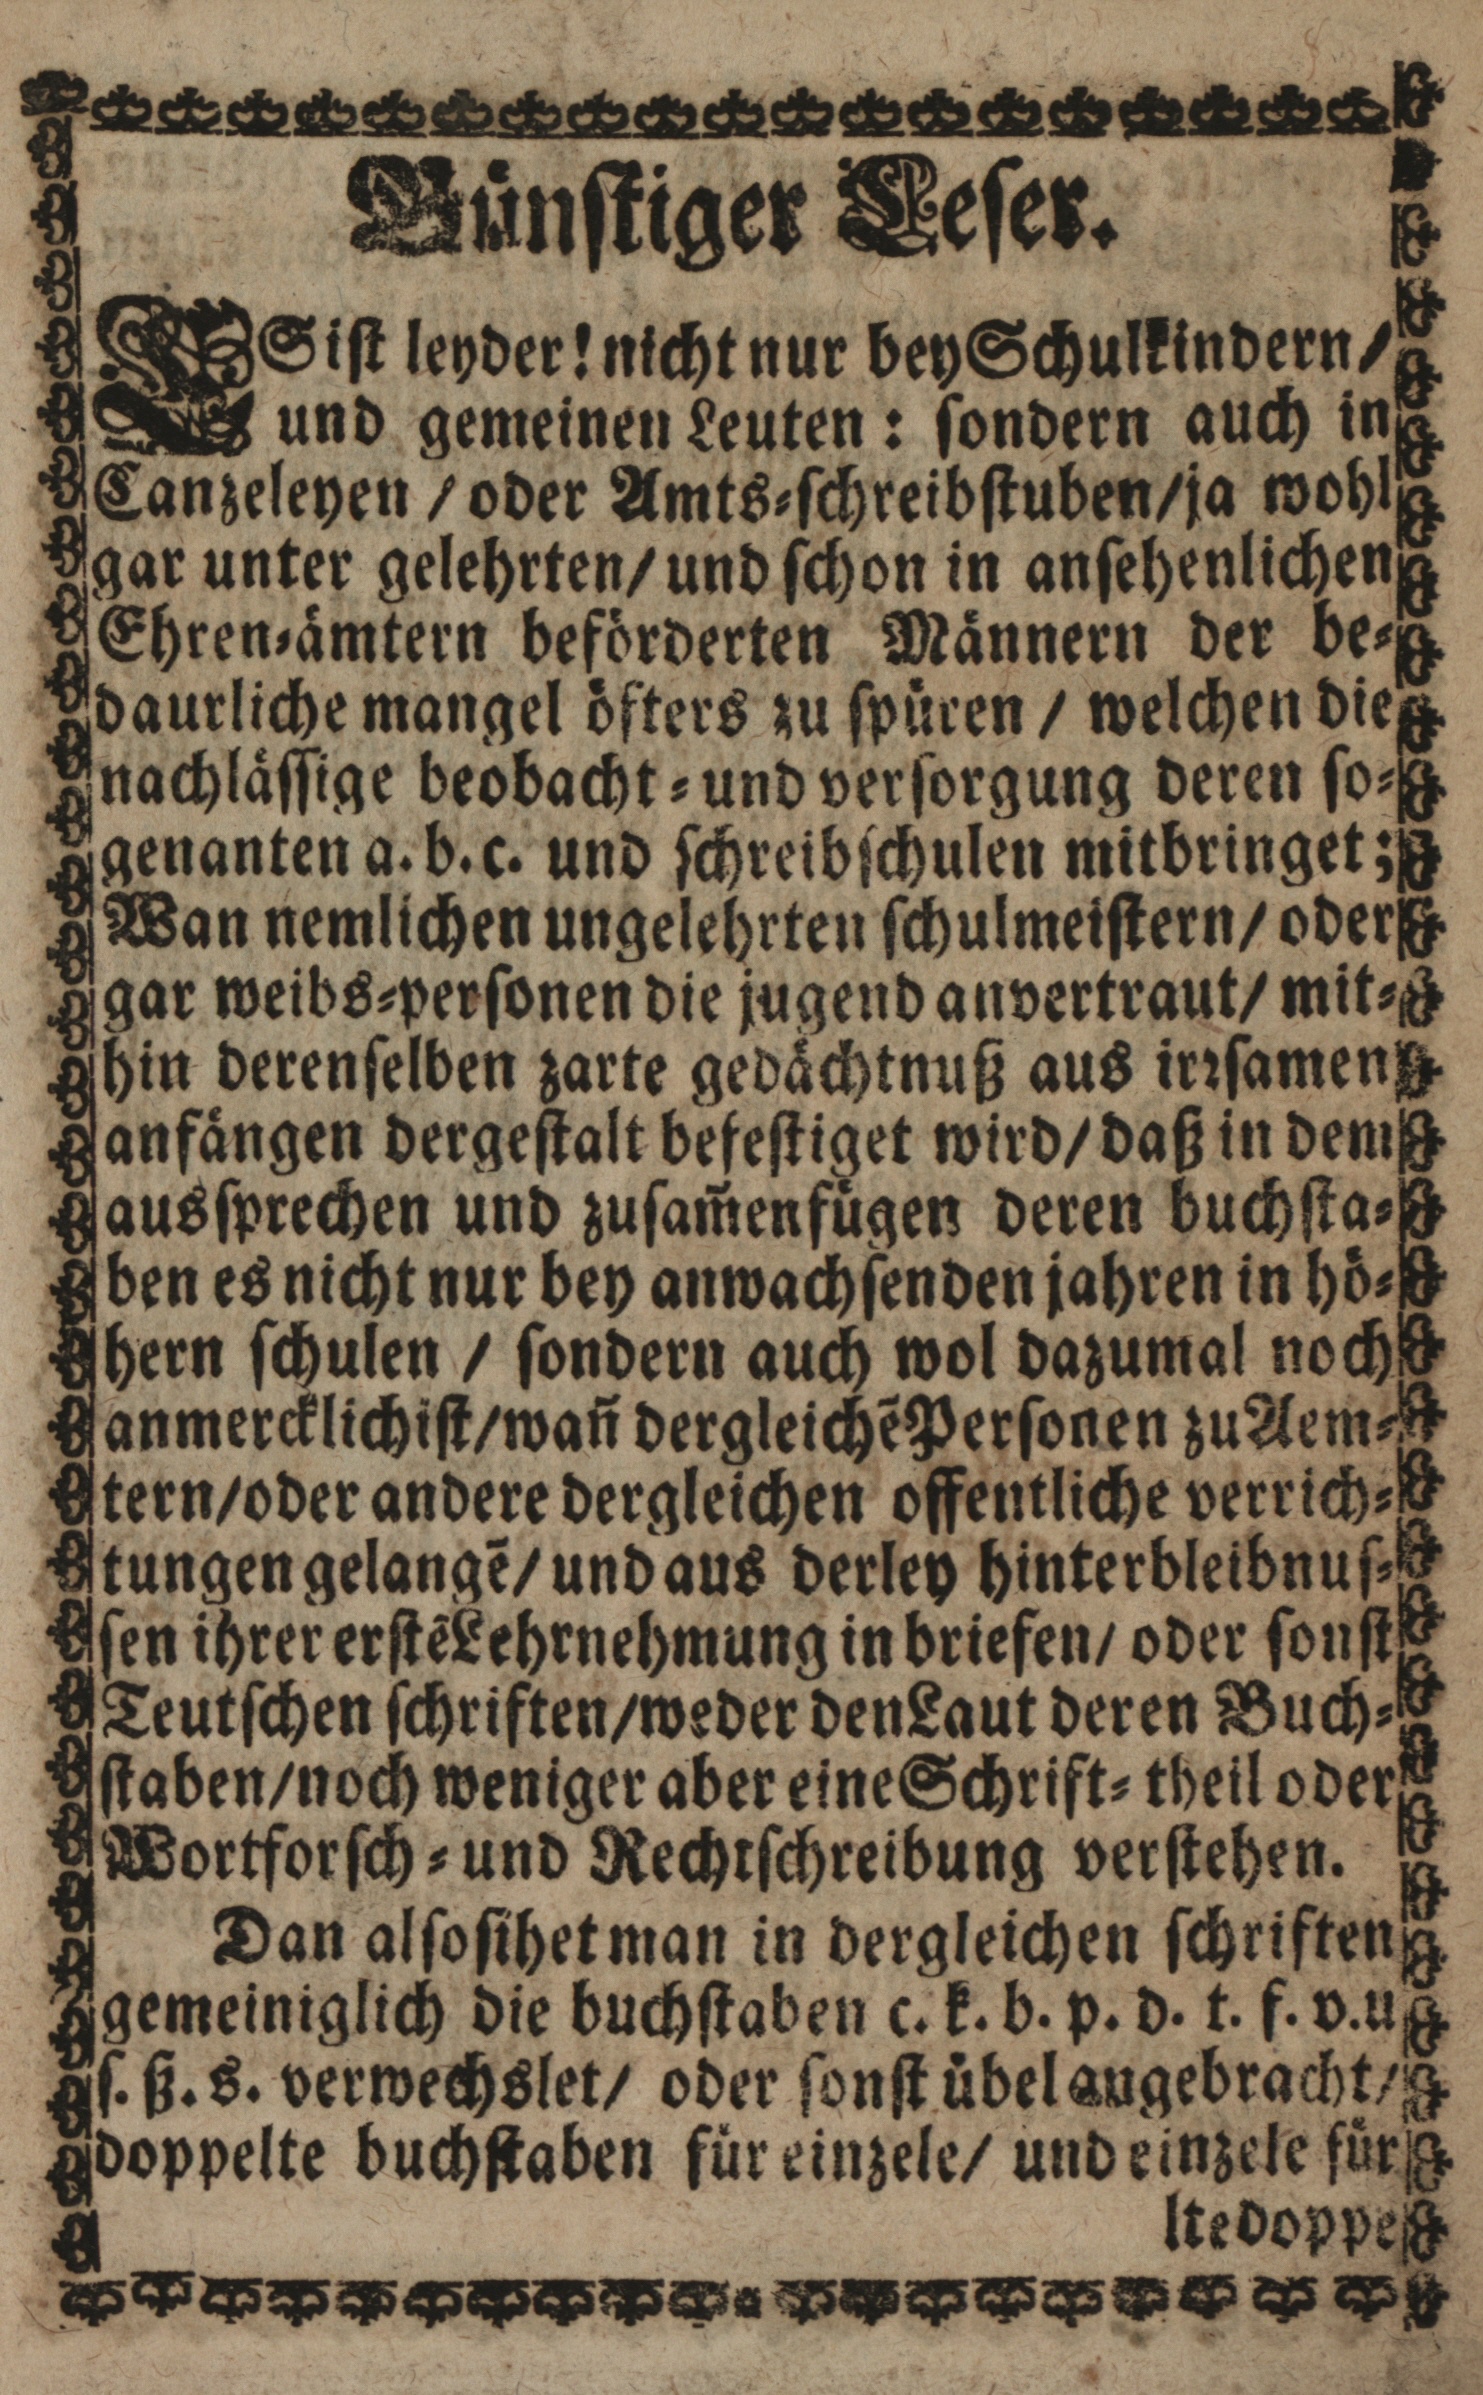 Günstiger Leser.
ES ist leyder! nicht nur bey Schulkindern/
und gemeinen Leuten: sondern auch in
Canzeleyen / oder Amts-schreibstuben/ja wohl
gar unter gelehrten/ und schon in ansehenlichen
Ehren-ämtern beförderten Männern der be-
daurliche mangel öfters zu spüren / welchen die
nachlässige beobacht- und versorgung deren so-
genanten a. b. c. und schreibschulen mitbringet;
Wan nemlichen ungelehrten schulmeistern/ oder
gar weibs-personen die jugend anvertraut/ mit-
hin derenselben zarte gedächtnuß aus irꝛsamen
anfängen dergestalt befestiget wird/ daß in dem
aussprechen und zusam̃enfügen deren buchsta-
ben es nicht nur bey anwachsenden jahren in hö-
hern schulen / sondern auch wol dazumal noch
anmercklich ist/wañ dergleichẽ Personen zu Aem-
tern/oder andere dergleichen offentliche verrich-
tungen gelangẽ/ und aus derley hinterbleibnus-
sen ihrer erstẽ Lehrnehmung in briefen/ oder sonst
Teutschen schriften/weder den Laut deren Buch-
staben/noch weniger aber eine Schrift- theil oder
Wortforsch- und Rechtschreibung verstehen.
Dan also sihet man in dergleichen schriften
gemeiniglich die buchstaben c. k. b. p. d. t. f. v. u
s. ß. s. verwechslet/ oder sonst übel angebracht/
doppelte buchstaben für einzele/ und einzele für
ltedoppe